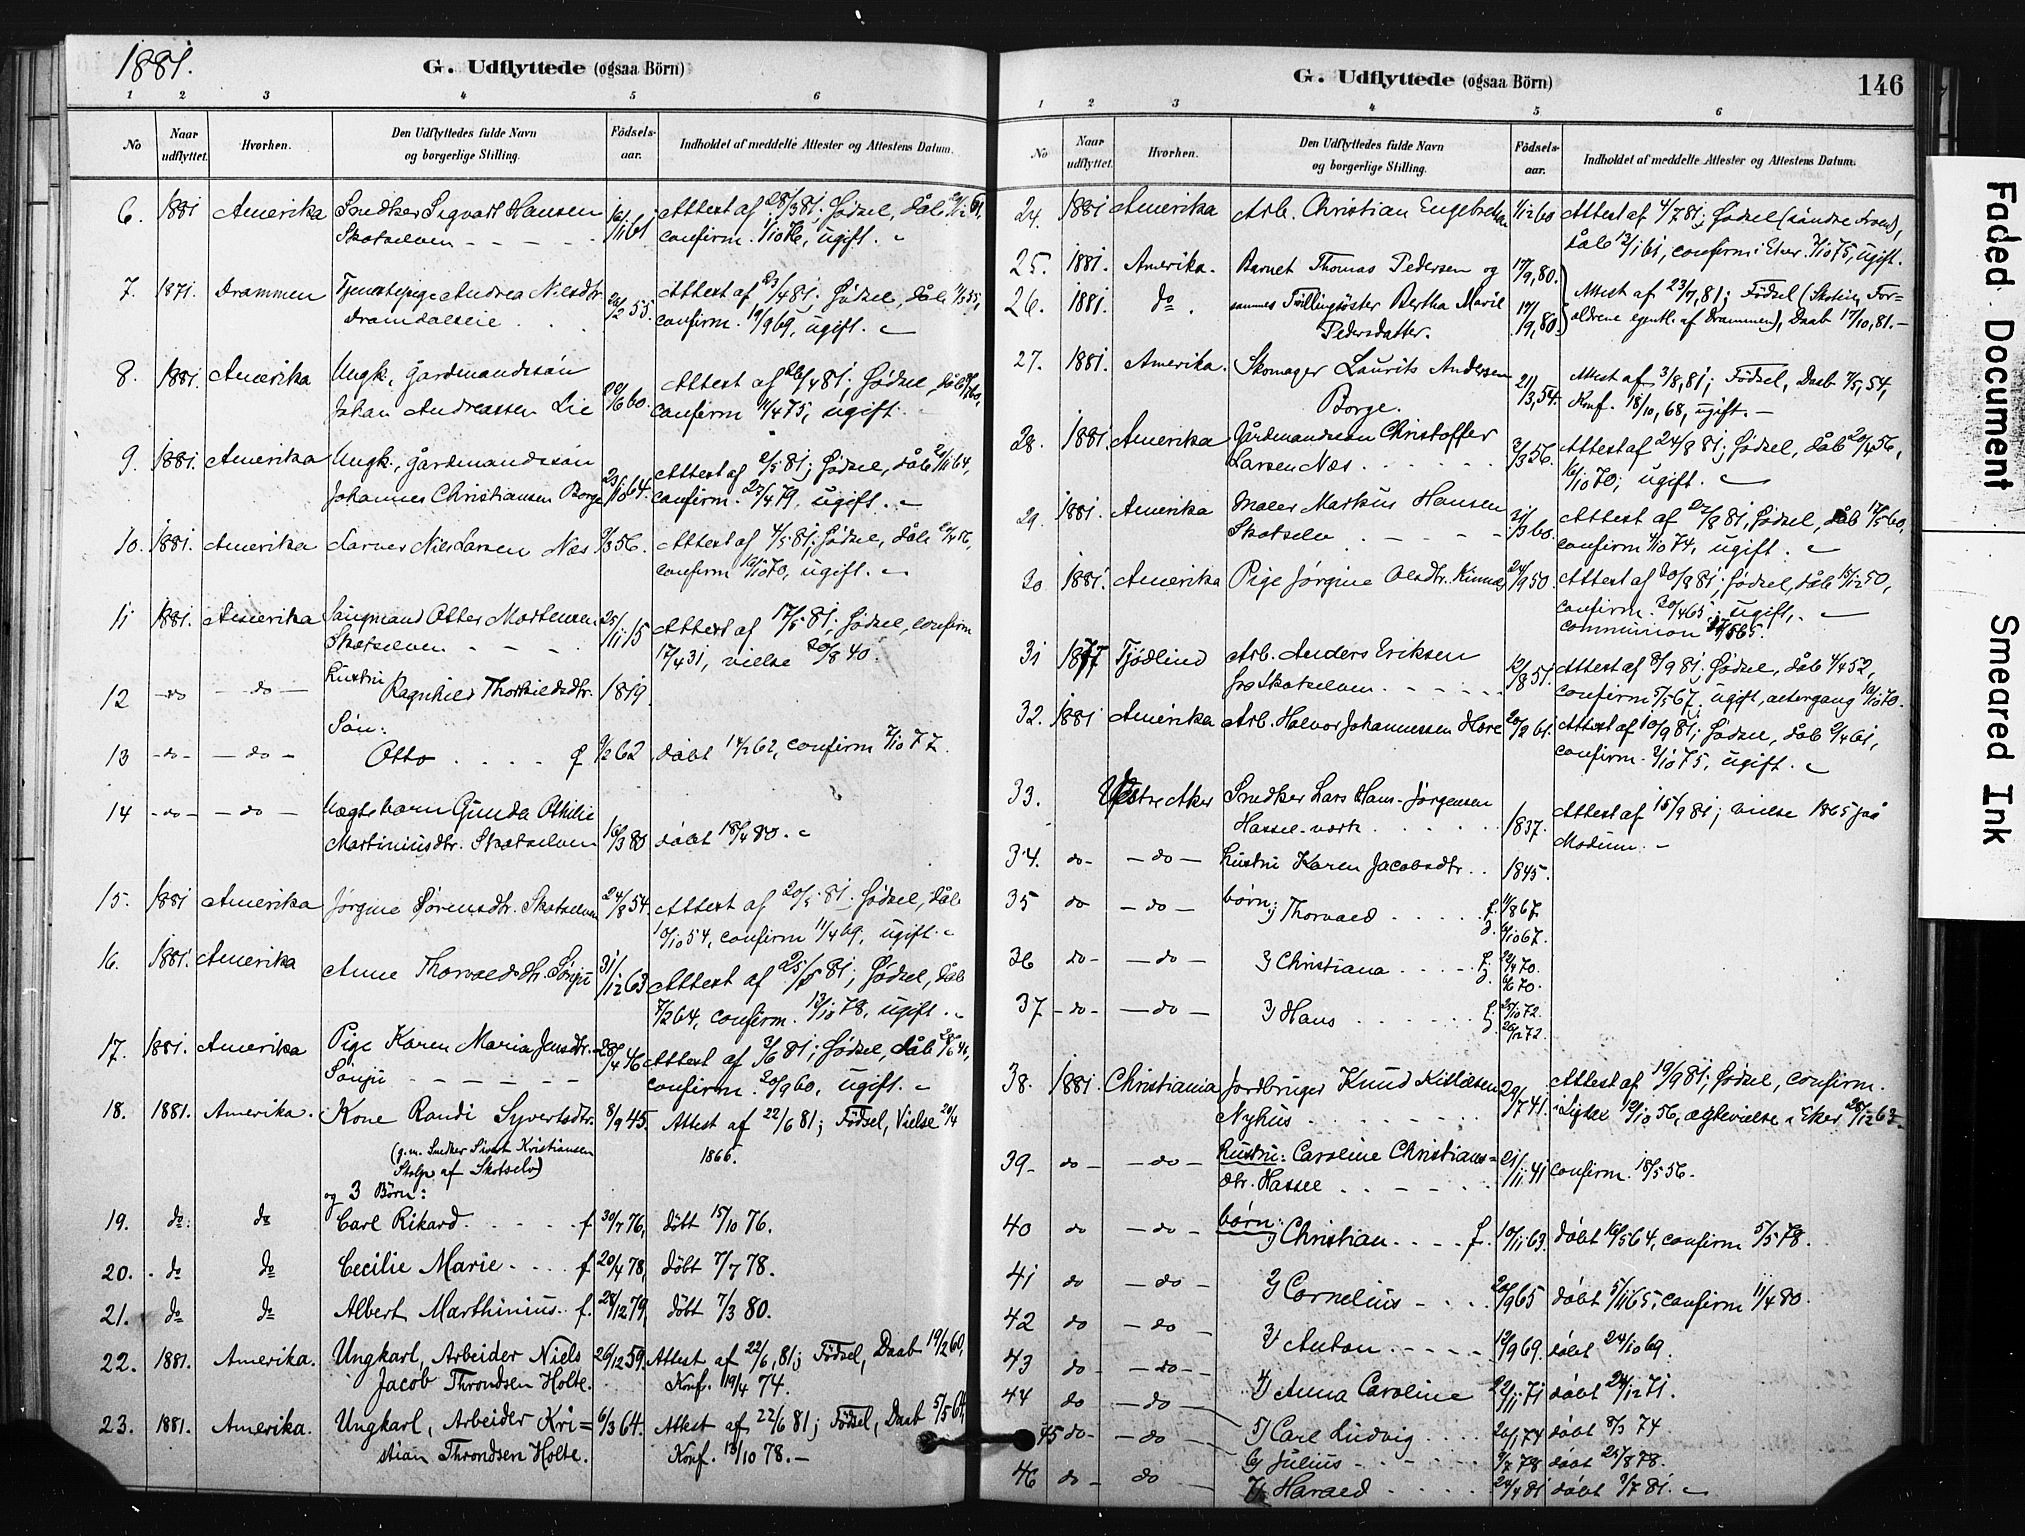 1881.
G. Udflyttede (ogsaa Börn)
1 2 3 4 5 6
No Naar udflyttet. Hvorhen. Den Udflyttedes fulde Navn og borgerlige Stilling. Födsels-aar. Indholdet af meddelte Attester og Attestens Datum.
6. 1881 Amerika Snedker Sigvart Hansen 16/11 61 Attest af 28/3 81; Fødsel, dåb
Skotselven confirm. 1/10 76, ugift.
7. 1871. Drammen Tjenestepige Andrea Nilsdtr. 55. Attest af 23/4 81; Fødsel, dåb
Dramdalseie confirm. 19/9 69, ugift.
8. 1881. Amerika Ungk., Gårdmandssøn
Johan Andreassen Lie 22/6 60. Attest af 26/4 81; Fødsel, dåb
confirm 11/4 75, ugift.
9. 1881. Amerika Ungk., Gårdmandssøn
Johannes Christiansen Borge 23/10 64. Attest af 2/5 81; Fødsel, dåb 64,
confirm. 27/4 79, ugift.
10. 1881. Amerika Nils Larsen Næs 3/3 56. Attest af 4/5 81; Fødsel, dåb 20/4 56,
confirm 16/10 70, ugift.
11 1881. Amerika Otter Mortensen 25/11 15 Attest af 17/5 81; Fødsel, confirm
Skotselven 17/4 31, vielse 20/8 40.
12 -do - do - Hustru Ragnhild Thorkildsdtr. 1819.
Søn:
13 -do- - do - Otto f 9/2 62 døbt 14/2 62, confirm 7/10 77.
14 -do- - do - Gunda Othilie
Martiniusdtr. Skotselven 16/3 80 døbt 18/4 80.
15. 1881 Amerika Jørgine Sørensdtr. Skotselven 24/8 54. Attest af 20/5 81. Fødsel, dåb
10/10 54, confirm 11/4 69, ugift.
16. 1881. Amerika Anne Thorvaldsdtr. Sønju 31/12 63 Attest af 25/5 81; Fødsel, dåb
7/2 64, confirm. 13/10 78, ugift.
17. 1881. Amerika Pige Karen Maria Jensdtr. 28/4 46 Attest af 3/6 81; Fødsel, dåb
Sønju confirm. 30/9 60, ugift.
18. 1881. Amerika. Kone Randi Syvertsdtr. 8/9 45. Attest af 22/6 81; Födsel, Vielse 20/4
(g.m. Snedker Sivert Kristiansen 1866.
Stolpe af Skotselv)
og 3 Börn:
19. do. do Carl Rikard. f 30/7 76, döbt 15/10 76.
20. do do Cecilie Marie. f 20/4 78, döbt 7/7 78.
21. do do Albert Marthinius. f. 28/12 79, döbt 7/3 80.
22. 1881. Amerika. Ungkarl, Arbeider Niels 26/12 59. Attest af 22/6, 81; Födsel, Daab 19/2 60,
Jacob Throndsen Holte. Konf. 19/4 74.
23. 1881. Amerika. Ungkarl, Arbeider Kri= 6/3 64. Attest af 22/6 81; Födsel, Daab 5/5 64,
stian Throndsen Holte. Konf. 13/10 78.—
G. Udflyttede (ogsaa Börn) 146
1 2 3 4 5 6
No Naar udflyttet. Hvorhen. Den Udflyttedes fulde Navn og borgerlige Stilling. Födsels-aar. Indholdet af meddelte Attester og Attestens Datum.
24. 1881 Amerika Arb. Christian Engebretsen 1/12 60 Attest af 4/7 81; Fødsel
dåb 13/1 61, confirm. 3/10 75, ugift.
25. 1881. Amerika. Barnet Thomas Pedersen og 17/9, 80.
26. 1881. do. sammes Tvillingsöster Bertha Marie 17/9, 80. Attest af 23/7, 81; Födsel (Skotselv, For=
Pedersdatter. ældrene egentl. af Drammen), Daab 17/10, 81.—
27. 1881. Amerika. Skomager Laurits Andersen 21/3, 54. Attest af 3/8, 81; Födsel, Daab 7/5, 54,
Borge. Konf. 18/10, 68, ugift.—
28. 1881. Amerika Gårdmandssøn Christoffer
Larsen Næs 3/3 56. Attest af 24/8 81; Fødsel, dåb 20/4 56,
16/10 70; ugift.
29. 1881. Amerika Maler Markus Hansen 60. Attest af 27/8 81, Fødsel, dåb 17/5 60,
Skotselv confirm 4/10 74, ugift.
30 1881. Amerika Pige Jørgine Olsdtr. Kinnæs 24/9 50 Attest af 30/8 81; Fødsel, dåb 15/12 50,
confirm. 30/4 65; ugift,
communion 65.
31 1877 Fjødlind Arb. Anders Eriksen
fra Skotselven 12/8 51. Attest af 8/9 81; Fødsel, dåb 4/4 52,
confirm 5/5 67, ugift, altergang 16/10 70.
32. 1881 Amerika Arb. Halvor Johannessen Hære 20/2 61. Attest af 10/9 81; Fødsel, dåb 2/4 61,
confirm. 3/10 75, ugift.
33. Vestre Aker Snedker Lars Hans-Jørgensen
Hassel-værk 1837. Attest af 15/9 81; vielse 1865 på
Modum.—
34. do- - do - Hustru Karen Jacobsdtr. 1845.
35 do - do - børn; 1) Thorvald f. 11/8 67.
6/10 67.
36 do- - do - 2) Christiana f. 22/4 70.
6/6 70.
37 - do- - do - 3) Hans f. 25/10 72.
26/12 72.
38. 1881. Christiania Jordbruger Knud Kittilsen
Nyhus 29/7 41. Attest af 19/9 81; Fødsel, confirm.
i Sigdal 12/10 56, ægtevielse i Eker 28/12 63
39- do - - do - Hustru: Caroline Christians=
dtr. Hassel 21/11 41 confirm. 18/5 56.
40 do - do - børn: 1) Christian f. 10/11 63. døbt 16/5 64, confirm 5/5 78.
41 do - do - 2) Cornelius 20/9 65 døbt 5/11 65, confirm 11/4 80.
42 do - do - 3) Anton 12/9 69. døbt 24/10 69.
43 do - do- 4) Anna Caroline 22/11 71 døbt 24/12 71.
44 do - do - 5) Carl Ludvig 20/1 74 døbt 8/3 74
45 do- - do - 6) Julius 9/7 78 døbt 25/8 78.
46 do - do - 7) Harald 24/4 81 døbt 3/7 81.
Faded Document
Smeared Ink